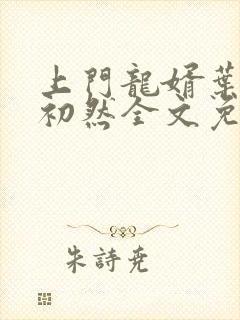 上門龍婿葉
初然全文免
朱詩堯